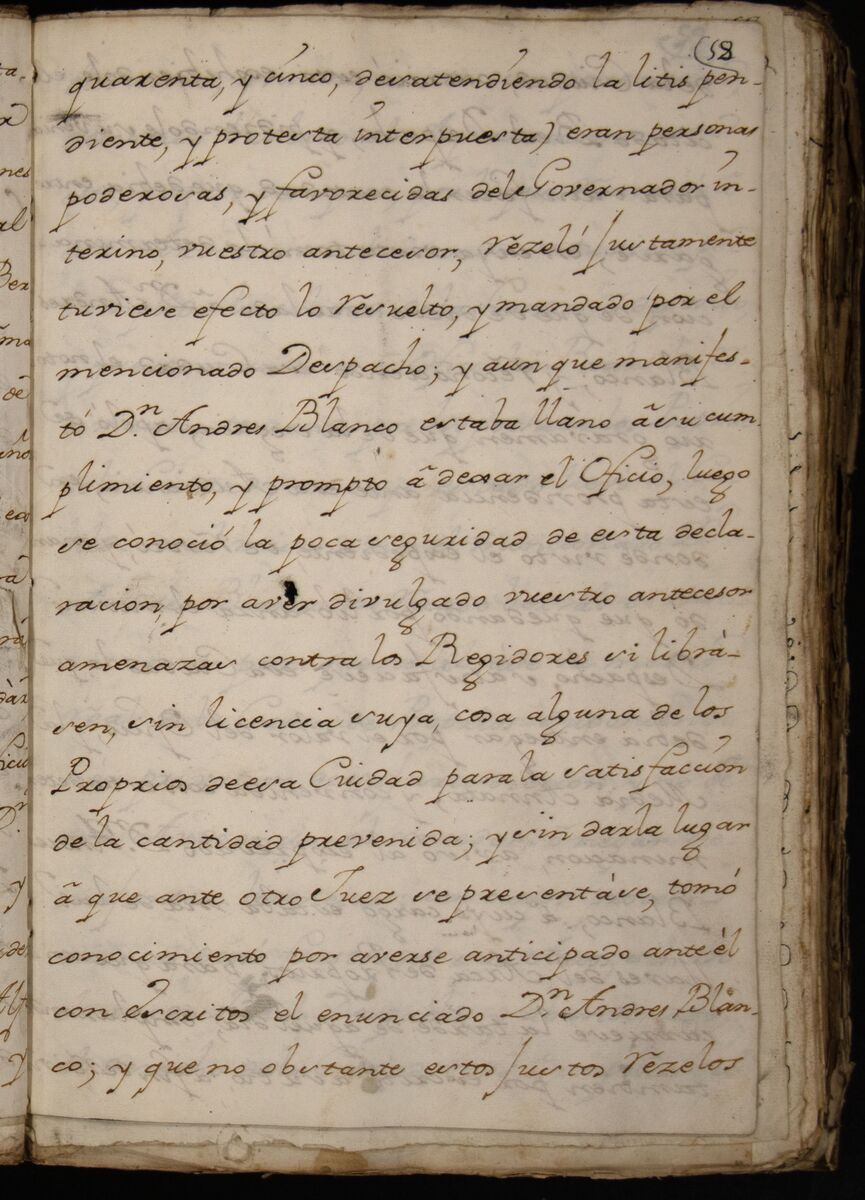 (58
quarenta, y cinco, desatendiendo la litis pen-
diente, y protesta interpuesta) eran personas
poderosas, y favorecidas del Governador in-
terino, vuestro antecesor, rezeló justamente
tuviese efecto lo resuelto, y mandado por el
mencionado Despacho; y aunque manifes-
tó D.n Andres Blanco estaba llano â su cum-
plimiento, y prompto â dexar el Oficio, luego
se conoció la poca seguridad de esta decla-
racion, por aver divulgado vuestro antecesor
amenazas contra los Regidores si librà-
sen, sin licencia suya, cosa alguna de los
Proprios de esa Ciudad para la satisfacción
de la cantidad prevenida; y sin darla lugar
â que ante otro Juez se presentáse, tomó
conocimiento por averse anticipado ante èl
con escritos el enunciado D.n Andres Blan-
co; y que no obstante estos justos rezelos